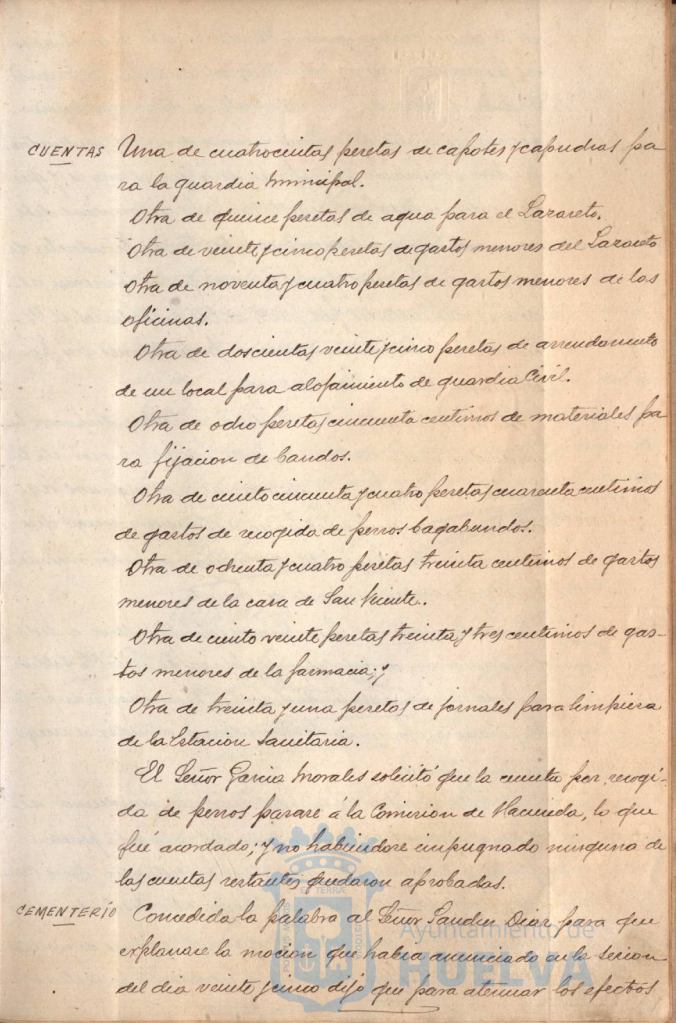 CUENTAS Una de cuatrocientas pesetas de capotes y capuchas pa
ra la guardia municipal.
Otra de quince pesetas de agua para el Lazareto.
Otra de veinte y cinco pesetas de gastos menores del Lazareto
Otra de noventa y cuatro pesetas de gastos menores de las
oficinas.
Otra de doscientas veinte y cinco pesetas de arrendamiento
de un local para alojamiento de guardia Civil.
Otra de ocho pesetas cincuenta centimos de materiales pa
ra fijacion de bandos.
Otra de ciento cincuenta y cuatro pesetas cuarenta centimos
de gastos de recogida de perros bagabundos.
Otra de ochenta y cuatro pesetas treinta centimos de gastos
menores de la casa de San Vicente.
Otra de ciento veinte pesetas treinta y tres centimos de gas-
tos menores de la farmacia; y
Otra de treinta y una pesetas de jornales para limpieza
de la Estacion Sanitaria.
El Señor Garcia Morales solicitó que la cuenta por recogi-
da de perros pasase á la Comision de Hacienda, lo que
fué acordado; y no habiendose impugnado ninguna de
las cuentas restantes quedaron aprobadas.
CEMENTERIO Concedida la palabra al Señor Sanchez Diaz para que
explanase la mocion que habia anunciado en la sesion
del dia veinte y cinco dijo que para atenuar los efectos
Ayuntamiento de
HUELVA